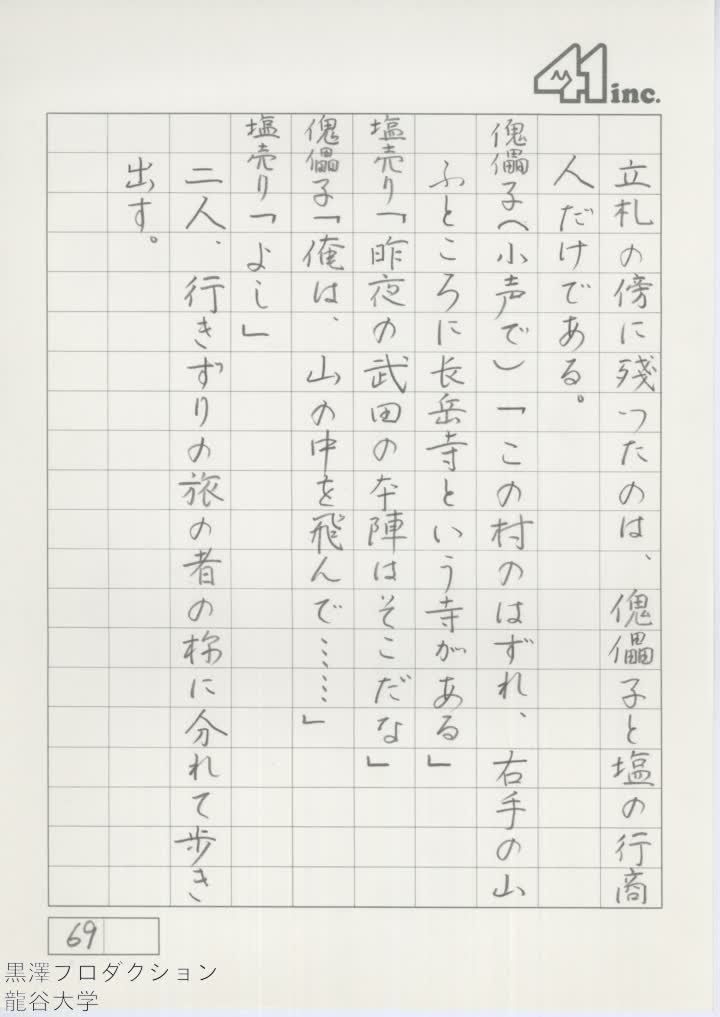 41 inc.
立札の傍に残ったのは、傀儡子と塩の行商
人だけである。
傀儡子(小声で)「この村のはずれ、右手の山
ふところに長岳寺という寺がある」
塩売り「昨夜の武田の本陣はそこだな」
傀儡子「俺は、山の中を飛んで……」
塩売り「よし」
二人、行きずりの旅の者の様に分れて歩き
出す。
69
黒澤プロダクション
龍谷大学